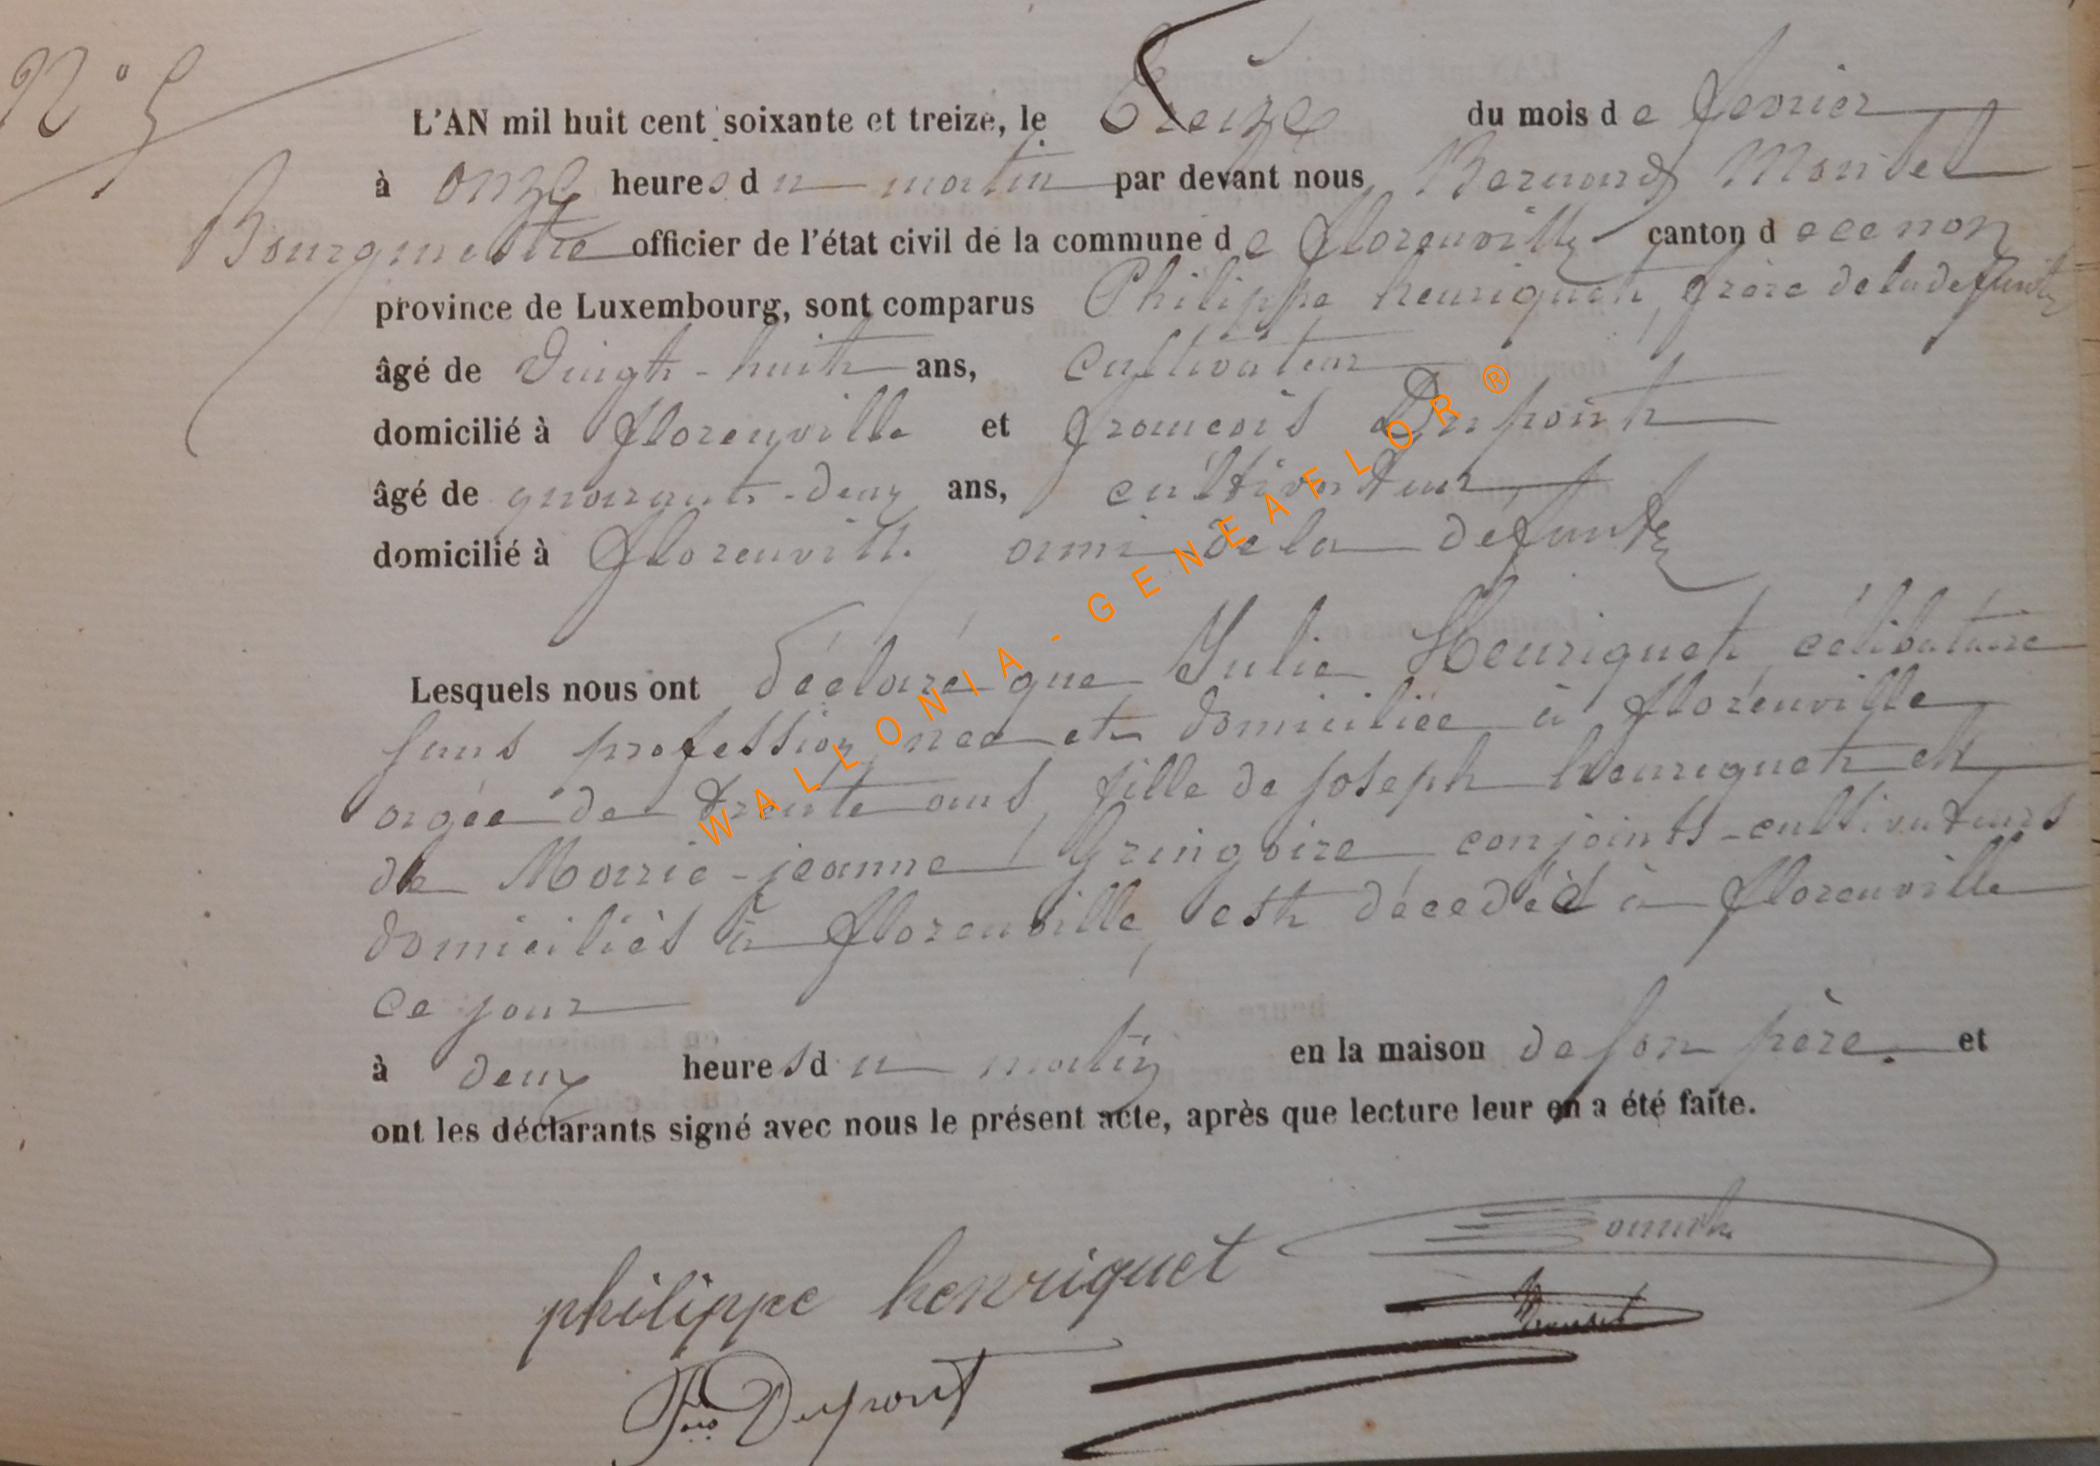 N° 5
L'AN mil huit cent soixante et treize, le treize du mois de fevrier
à onze heures du matin par devant nous Bernard
Bourgmestre officier de l'état civil de la commune de florenville canton d
province de Luxembourg, sont comparus Philippe henriquet, frère de la defunte
âgé de vingt-huit ans, cultivateur
domicilié à florenville et françois Dupont
âgé de quarante-deux ans, cultivateur
domicilié à florenville ami de la defunte
Lesquels nous ont déclaré que Julie Henriquet, célibataire
sans profession née et domiciliée à florenville
agée de trente ans, fille de joseph henriquet et
de Marie-jeanne Gringoire conjoints-cultivateurs
domiciliés à florenville, est décedéé à florenville
ce jour
à deux heures du matin en la maison de son père. et
ont les déclarants signé avec nous le présent acte, après que lecture leur en a été faite.
philippe henriquet
Dupont
WALLONIA - GENEAFLOR®